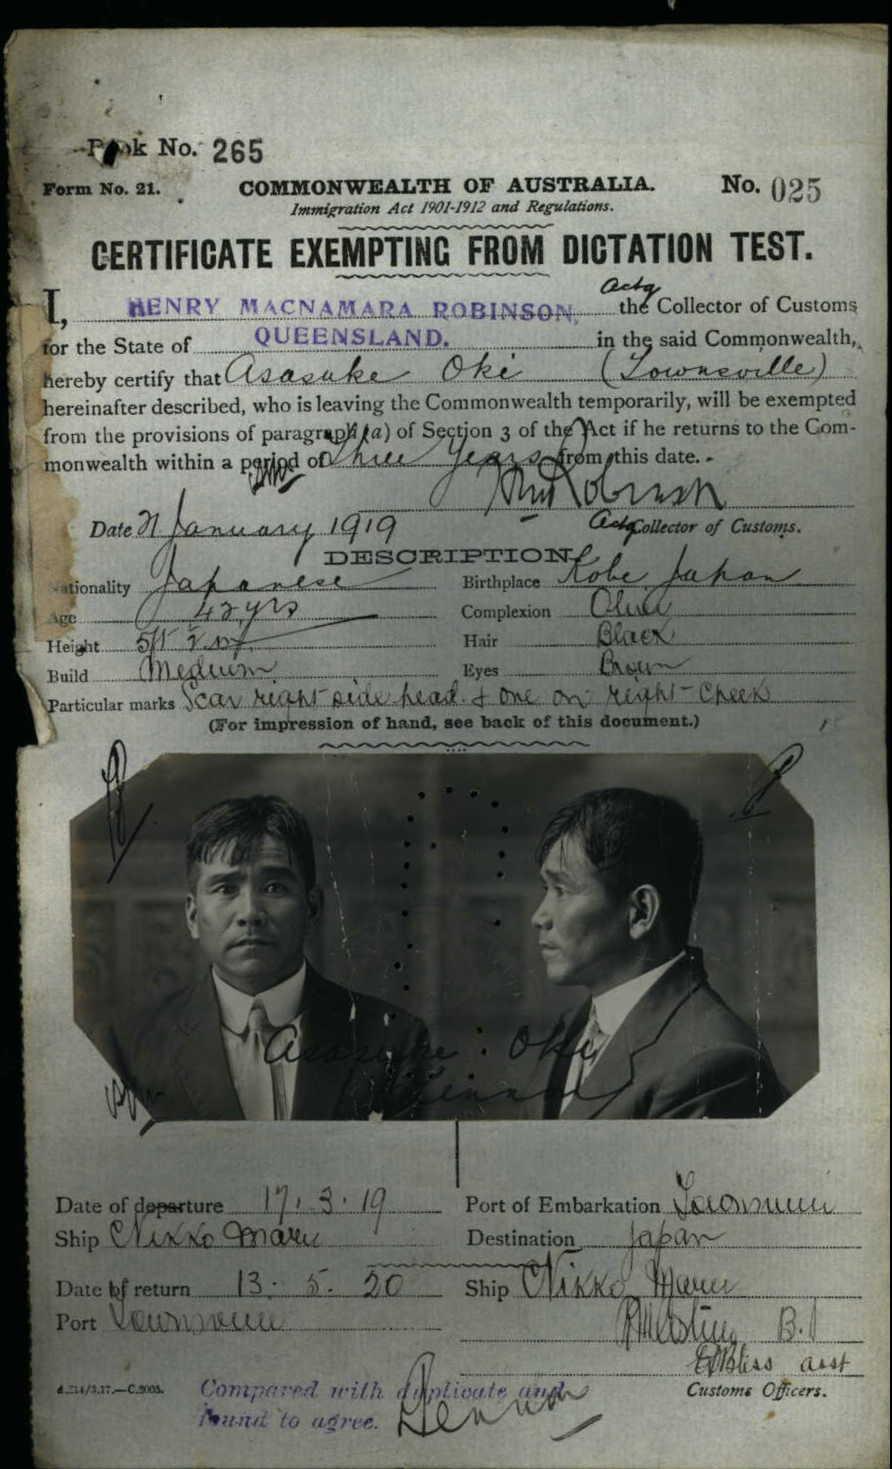 Book No. 265
Form No. 21. COMMONWEALTH OF AUSTRALIA. No. 025
Immigration Act 1901-1912 and Regulations.
CERTIFICATE EXEMPTING FROM DICTATION TEST.
Actg
I, HENRY MACNAMARA ROBINSON, the Collector of Customs
for the State of QUEENSLAND. in the said Commonwealth,
hereby certify that Asasuke Oki (Townsville)
hereinafter described, who is leaving the Commonwealth temporarily, will be exempted
from the provisions of paragraph (a) of Section 3 of the Act if he returns to the Com-
monwealth within a period of Three Years from this date.
Robinson
Date 21 January 1919 Actg Collector of Customs.
DESCRIPTION
Nationality Japanese Birthplace Kobe Japan
Age 42 yrs Complexion Olive
Height 5ft 2 in Hair Black
Build Medium Eyes Brown
Particular marks Scar right side head & one on right cheek
(For impression of hand, see back of this document.)
Asasuke Oki
Date of departure 17.3.19 Port of Embarkation Townsville
Ship Nikko Maru Destination Japan
Date of return 13.5.20 Ship Nikko Maru
Port Townsville
Bliss asst
Customs Officers.
C.2005.
Compared with duplicate and
found to agree.